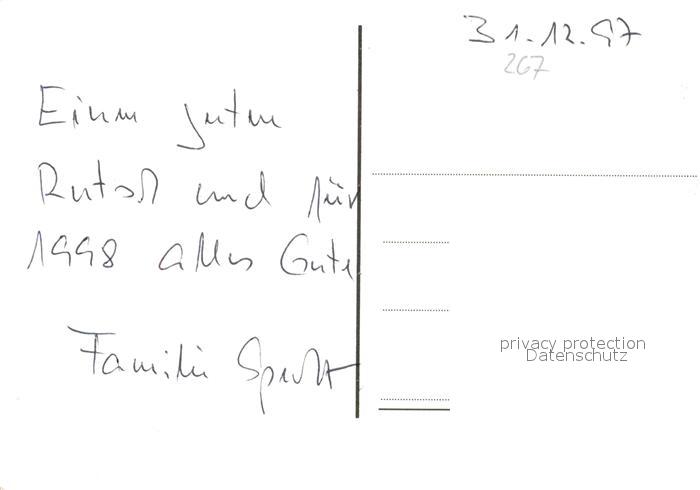 Einen guten
Rutsch und für
1998 alles Gute
Familie
31.12.97
267
privacy protection
Datenschutz